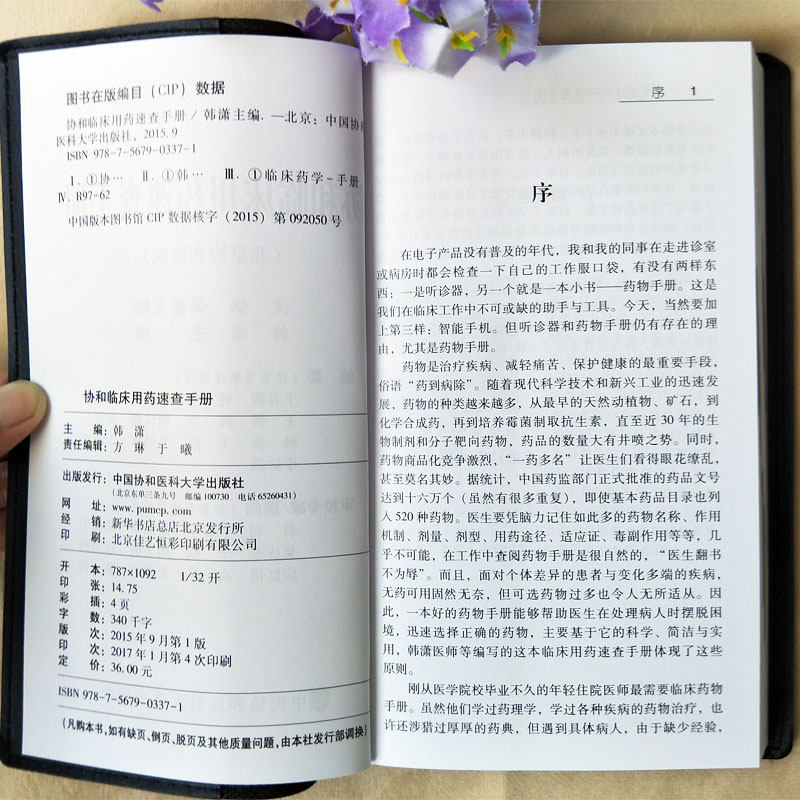 图书在版编目（CIP）数据
协和临床用药速查手册 / 韩潇主编. —北京：中国协和
医科大学出版社，2015.9
ISBN 978-7-5679-0337-1
Ⅰ. ①协… Ⅱ. ①韩… Ⅲ. ①临床药学-手册
Ⅳ. R97-62
中国版本图书馆 CIP 数据核字（2015）第 092050 号
协和临床用药速查手册
主 编：韩 潇
责任编辑：方 琳 于 曦
出版发行：中国协和医科大学出版社
（北京东单三条九号 邮编 100730 电话 65260431）
网 址：www.pumcp.com
经 销：新华书店总店北京发行所
印 刷：北京佳艺恒彩印刷有限公司
开 本：787×1092 1/32 开
印 张：14.75
彩 插：4 页
字 数：340 千字
版 次：2015 年 9 月第 1 版
印 次：2017 年 1 月第 4 次印刷
定 价：36.00 元
ISBN 978-7-5679-0337-1
（凡购本书，如有缺页、倒页、脱页及其他质量问题，由本社发行部调换）
序 1
序
在电子产品没有普及的年代，我和我的同事在走进诊室
或病房时都会检查一下自己的工作服口袋，有没有两样东
西：一是听诊器，另一个就是一本小书——药物手册。这是
我们在临床工作中不可或缺的助手与工具。今天，当然要加
上第三样：智能手机。但听诊器和药物手册仍有存在的理
由，尤其是药物手册。
药物是治疗疾病、减轻痛苦、保护健康的最重要手段，
俗语“药到病除”。随着现代科学技术和新兴工业的迅速发
展，药物的种类越来越多，从最早的天然动植物、矿石，到
化学合成药，再到培养霉菌制取抗生素，直至近 30 年的生
物制剂和分子靶向药物，药品的数量大有井喷之势。同时，
药物商品化竞争激烈，“一药多名”让医生们看得眼花缭乱，
甚至莫名其妙。据统计，中国药监部门正式批准的药品文号
达到十六万个（虽然有很多重复），即使基本药品目录也列
入 520 种药物。医生要凭脑力记住如此多的药物名称、作用
机制、剂量、剂型、用药途径、适应证、毒副作用等等，几
乎不可能，在工作中查阅药物手册是很自然的，“医生翻书
不为辱”。而且，面对个体差异的患者与变化多端的疾病，
无药可用固然无奈，但可选药物过多也令人无所适从。因
此，一本好的药物手册能够帮助医生在处理病人时摆脱困
境，迅速选择正确的药物，主要基于它的科学、简洁与实
用，韩潇医师等编写的这本临床用药速查手册体现了这些
原则。
刚从医学院校毕业不久的年轻住院医师最需要临床药物
手册。虽然他们学过药理学，学过各种疾病的药物治疗，也
许还涉猎过厚厚的药典，但遇到具体病人，由于缺少经验，